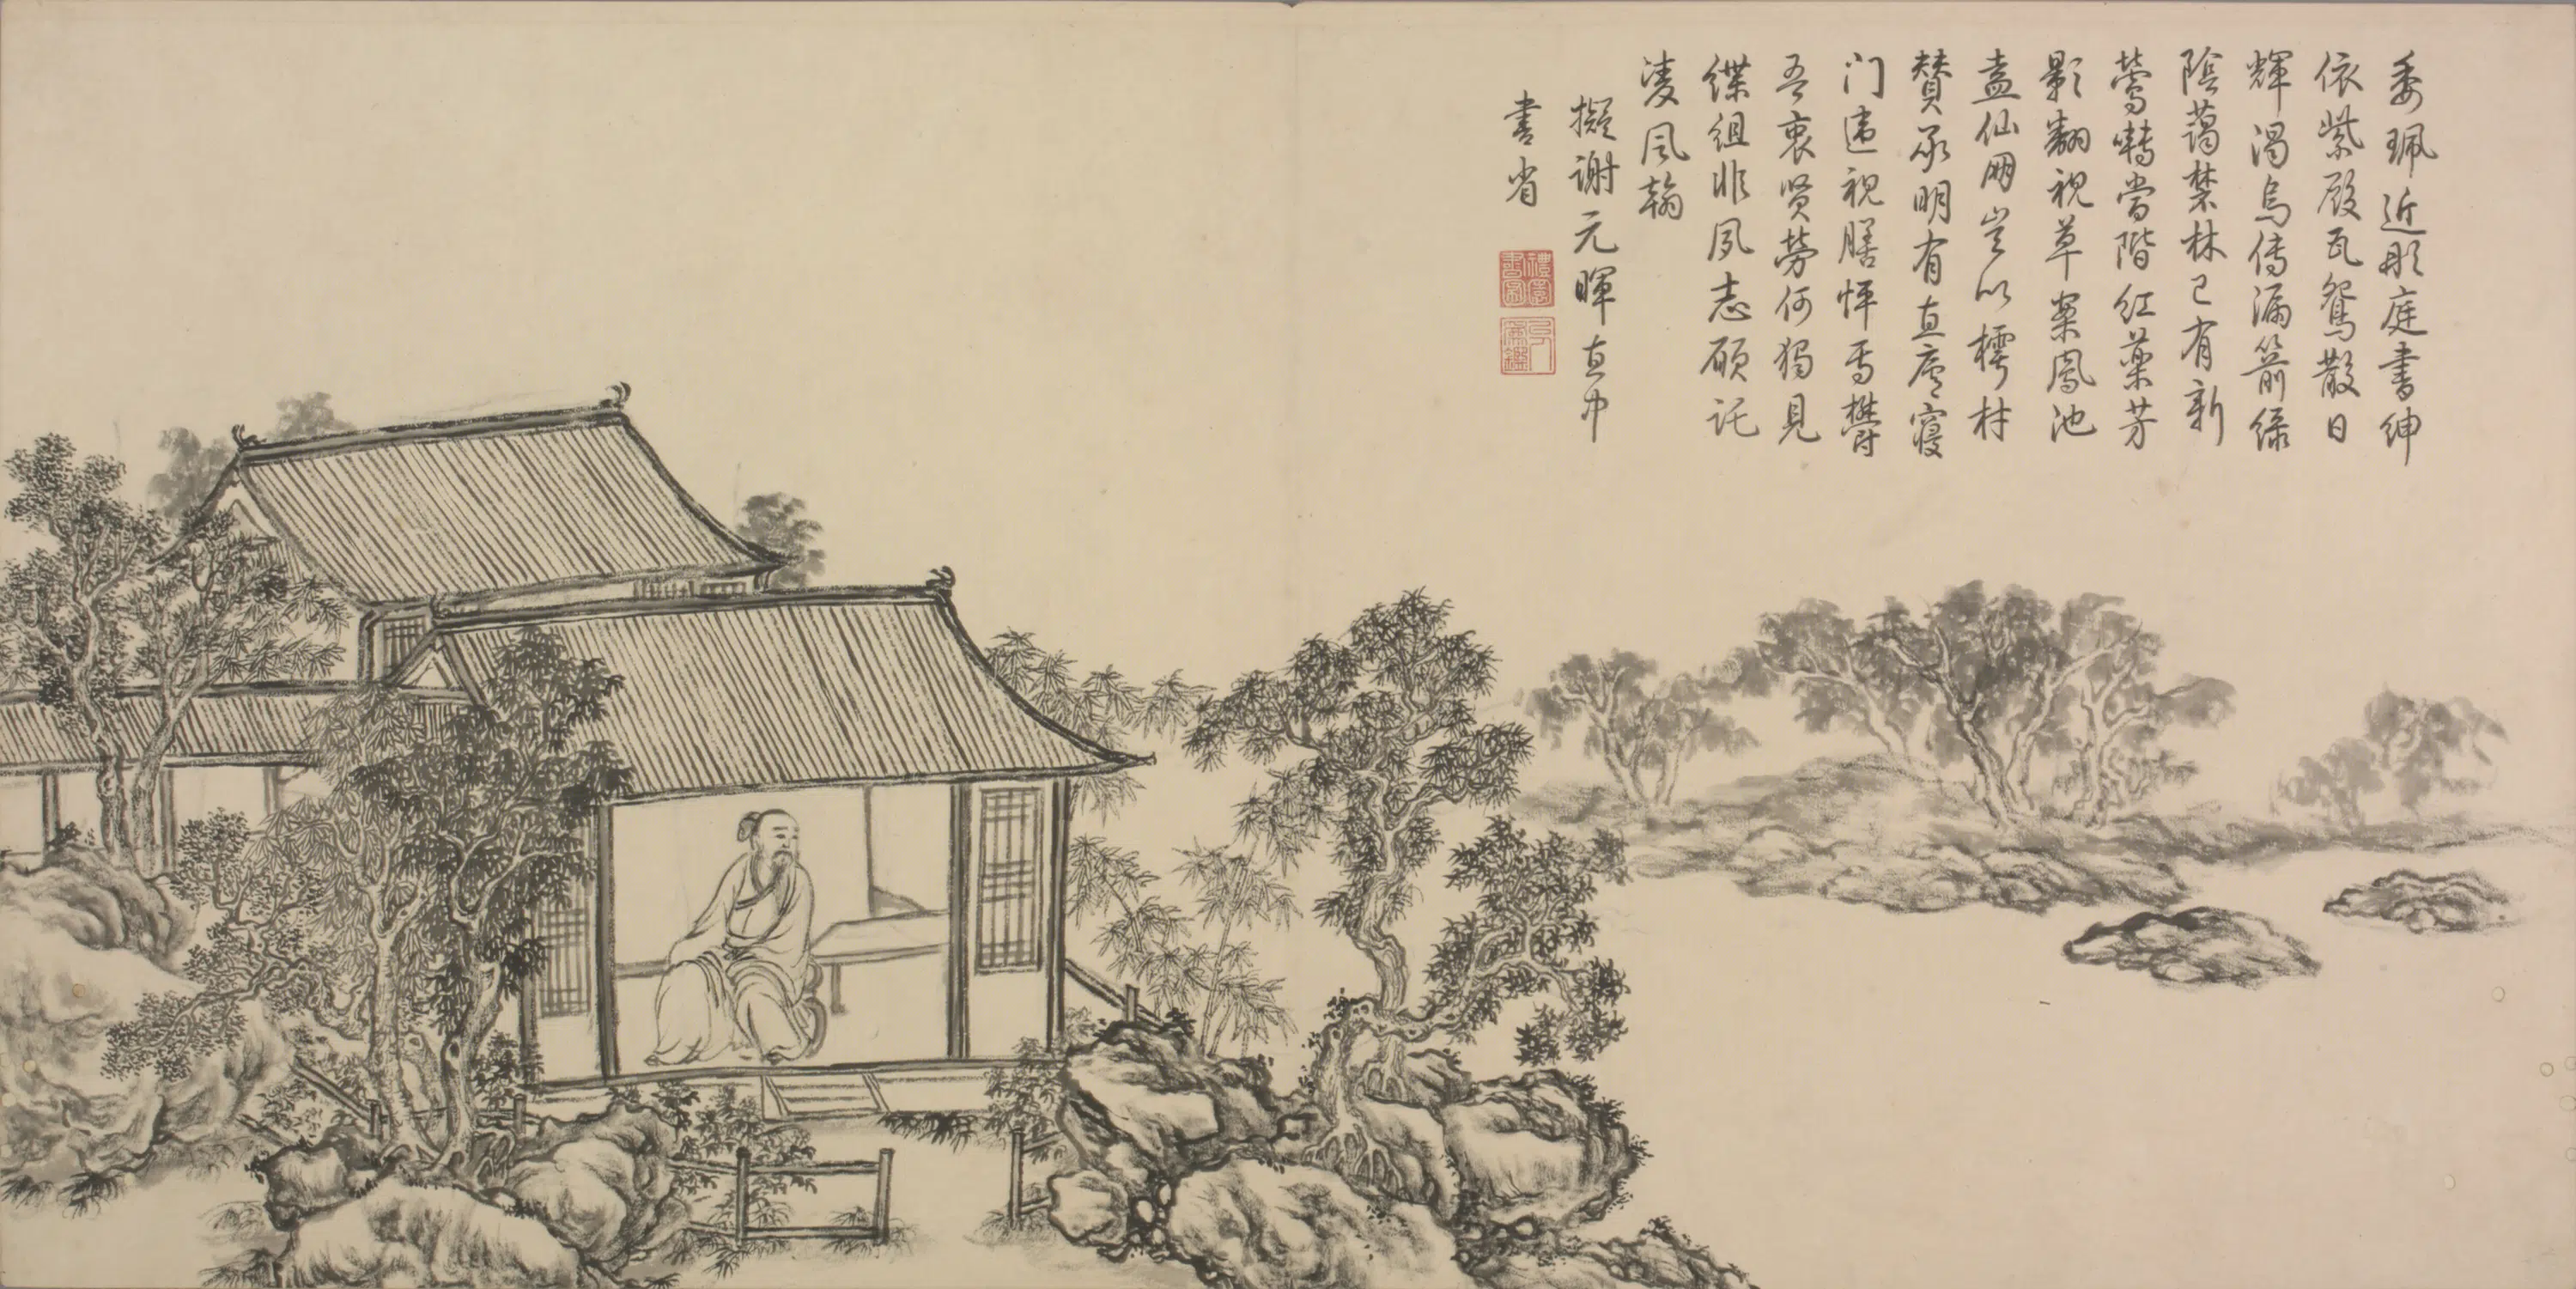 委珮近彤庭書紳
依紫殿瓦鴛散日
輝渴烏傳漏箭綠
陰藹禁林已有新
鶯囀當階紅藥芳
影翻視草案鳳池
盍仙朋豈以樗材
贊承明有直廬寢
门違視膳怦焉鬱
吾衷賢勞何獨見
緤組非夙志願託
凌风翰
擬謝元暉直中
書省